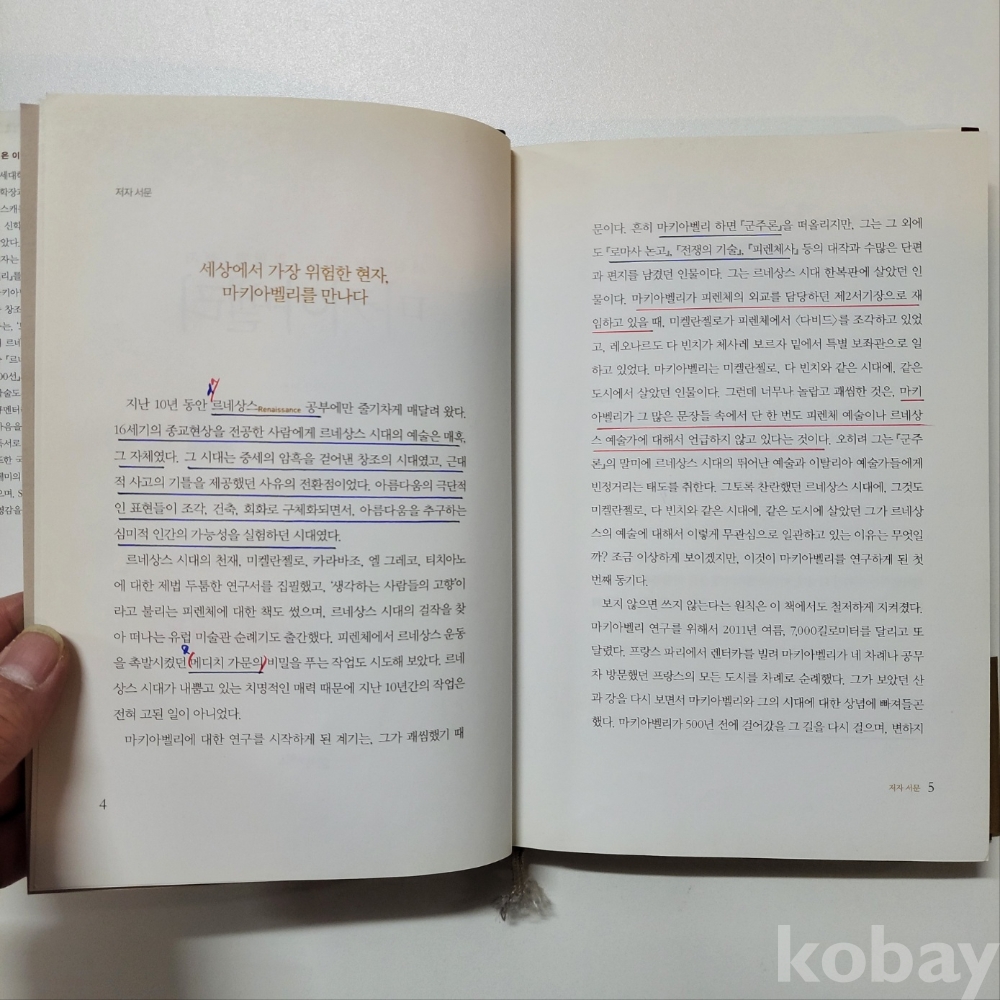 은 이
세대학
학장과
스캐
신학
았다.
자는
리』를
키아벨
창조
는, '
『르네
00선』
술도
멘터
음을
서로
한 국
미의
며, S
영감을
저자 서문
세상에서 가장 위험한 현자,
마키아벨리를 만나다
지난 10년 동안 르네상스Renaissance 공부에만 줄기차게 매달려 왔다.
16세기의 종교현상을 전공한 사람에게 르네상스 시대의 예술은 매혹,
그 자체였다. 그 시대는 중세의 암흑을 걷어낸 창조의 시대였고, 근대
적 사고의 기틀을 제공했던 사유의 전환점이었다. 아름다움의 극단적
인 표현들이 조각, 건축, 회화로 구체화되면서, 아름다움을 추구하는
심미적 인간의 가능성을 실험하던 시대였다.
르네상스 시대의 천재, 미켈란젤로, 카라바조, 엘 그레코, 티치아노
에 대한 제법 두툼한 연구서를 집필했고, '생각하는 사람들의 고향'이
라고 불리는 피렌체에 대한 책도 썼으며, 르네상스 시대의 걸작을 찾
아 떠나는 유럽 미술관 순례기도 출간했다. 피렌체에서 르네상스 운동
을 촉발시켰던 메디치 가문의 비밀을 푸는 작업도 시도해 보았다. 르네
상스 시대가 내뿜고 있는 치명적인 매력 때문에 지난 10년간의 작업은
전혀 고된 일이 아니었다.
마키아벨리에 대한 연구를 시작하게 된 계기는, 그가 괘씸했기 때
4
문이다. 흔히 마키아벨리 하면 『군주론』을 떠올리지만, 그는 그 외에
도 『로마사 논고』, 『전쟁의 기술』, 『피렌체사』 등의 대작과 수많은 단편
과 편지를 남겼던 인물이다. 그는 르네상스 시대 한복판에 살았던 인
물이다. 마키아벨리가 피렌체의 외교를 담당하던 제2서기장으로 재
임하고 있을 때, 미켈란젤로가 피렌체에서 〈다비드〉를 조각하고 있었
고, 레오나르도 다 빈치가 체사레 보르자 밑에서 특별 보좌관으로 일
하고 있었다. 마키아벨리는 미켈란젤로, 다 빈치와 같은 시대에, 같은
도시에서 살았던 인물이다. 그런데 너무나 놀랍고 괘씸한 것은, 마키
아벨리가 그 많은 문장들 속에서 단 한 번도 피렌체 예술이나 르네상
스 예술가에 대해서 언급하지 않고 있다는 것이다. 오히려 그는 『군주
론』의 말미에 르네상스 시대의 뛰어난 예술과 이탈리아 예술가들에게
빈정거리는 태도를 취한다. 그토록 찬란했던 르네상스 시대에, 그것도
미켈란젤로, 다 빈치와 같은 시대에, 같은 도시에 살았던 그가 르네상
스의 예술에 대해서 이렇게 무관심으로 일관하고 있는 이유는 무엇일
까? 조금 이상하게 보이겠지만, 이것이 마키아벨리를 연구하게 된 첫
번째 동기다.
보지 않으면 쓰지 않는다는 원칙은 이 책에서도 철저하게 지켜졌다.
마키아벨리 연구를 위해서 2011년 여름, 7,000킬로미터를 달리고 또
달렸다. 프랑스 파리에서 렌터카를 빌려 마키아벨리가 네 차례나 공무
차 방문했던 프랑스의 모든 도시를 차례로 순례했다. 그가 보았던 산
과 강을 다시 보면서 마키아벨리와 그의 시대에 대한 상념에 빠져들곤
했다. 마키아벨리가 500년 전에 걸어갔을 그 길을 다시 걸으며, 변하지
저자 서문 5
kobay